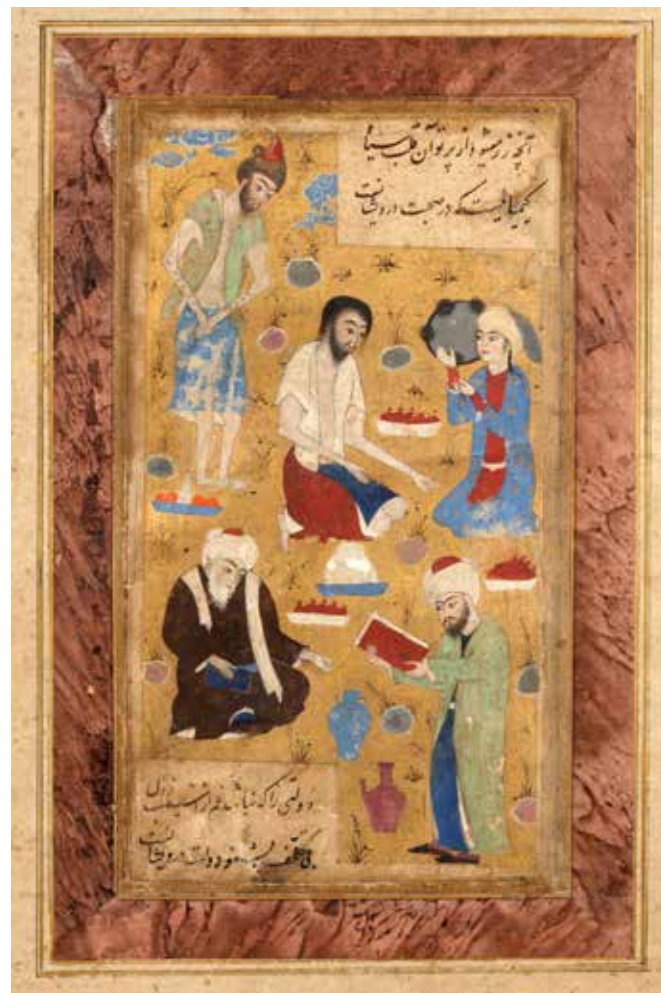 آنچه زر میشود از پرتو آن قلب سیاه
کیمیائیست که در صحبت درویشانست
دولتی را که نباشد غم از آسیب زوال
بی تکلف بشنو دولت درویشانست